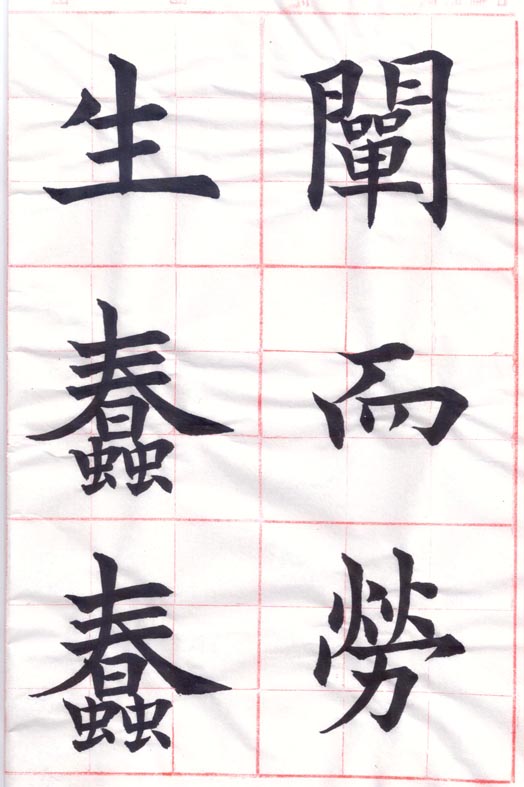 闡而勞
生蠢蠢